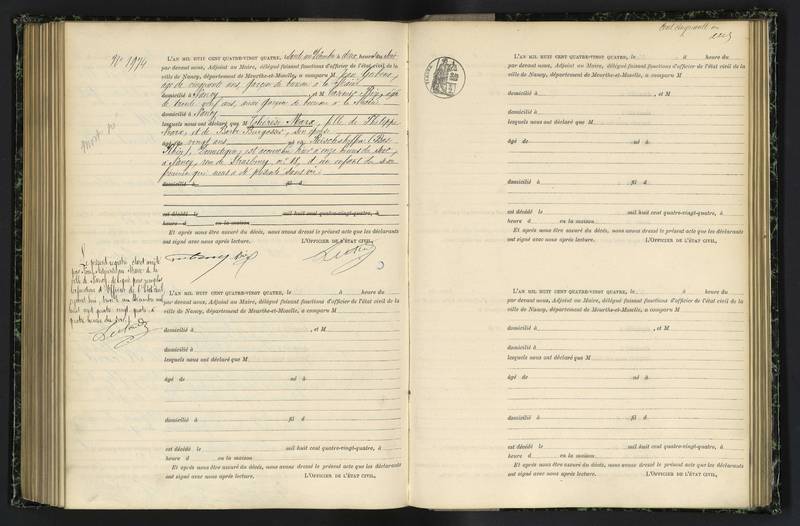 N° 1974
L'AN MIL HUIT CENT QUATRE-VINGT QUATRE, trente un Décembre à deux heures du soir
par devant nous, Adjoint au Maire, délégué faisant fonctions d'officier de l'état civil de la
ville de Nancy, département de Meurthe-et-Moselle, a comparu M
âgé de cinquante ans, garçon de bureau à la Mairie
domicilié à Nancy, et M
de trente neuf ans, aussi garçon de bureau à la Mairie
domicilié à Nancy
lesquels nous ont déclaré que M Thérèse Marx, fille de Philippe
Marx, et de Barbe Burgesser, son épouse
âgé de vingt ans né à Reischshoffen (Bas
Rhin), domestique, est accouchée hier à onze heures du soir,
à Nancy, rue de Strasbourg n° 11, d'un enfant du sexe
féminin qui nous a été présenté sans vie.
domicilié à fil d
est décédé le mil huit cent quatre-vingt-quatre, à
heure d en la maison
Et après nous être assuré du décès, nous avons dressé le présent acte que les déclarants
ont signé avec nous après lecture. L'OFFICIER DE L'ÉTAT CIVIL,
mort né
Le présent registre, clos et arrêté
par nous, Adjoint au Maire de la
ville de Nancy, délégué pour remplir
les fonctions d'Officier de l'État civil,
aujourd'hui, trente un Décembre mil
huit cent quatre vingt quatre à
quatre heures du soir.
L'AN MIL HUIT CENT QUATRE-VINGT QUATRE, le à heure du
par devant nous, Adjoint au Maire, délégué faisant fonctions d'officier de l'état civil de la
ville de Nancy, département de Meurthe-et-Moselle, a comparu M
domicilié à , et M
domicilié à
lesquels nous ont déclaré que M
âgé de né à
domicilié à fil d
est décédé le mil huit cent quatre-vingt-quatre, à
heure d en la maison
Et après nous être assuré du décès, nous avons dressé le présent acte que les déclarants
ont signé avec nous après lecture. L'OFFICIER DE L'ÉTAT CIVIL,
Cent cinquante un
L'AN MIL HUIT CENT QUATRE-VINGT QUATRE, le à heure du
par devant nous, Adjoint au Maire, délégué faisant fonctions d'officier de l'état civil de la
ville de Nancy, département de Meurthe-et-Moselle, a comparu M
domicilié à , et M
domicilié à
lesquels nous ont déclaré que M
âgé de né à
domicilié à fil d
est décédé le mil huit cent quatre-vingt-quatre, à
heure d en la maison
Et après nous être assuré du décès, nous avons dressé le présent acte que les déclarants
ont signé avec nous après lecture. L'OFFICIER DE L'ÉTAT CIVIL,
L'AN MIL HUIT CENT QUATRE-VINGT QUATRE, le à heure du
par devant nous, Adjoint au Maire, délégué faisant fonctions d'officier de l'état civil de la
ville de Nancy, département de Meurthe-et-Moselle, a comparu M
domicilié à , et M
domicilié à
lesquels nous ont déclaré que M
âgé de né à
domicilié à fil d
est décédé le mil huit cent quatre-vingt-quatre, à
heure d en la maison
Et après nous être assuré du décès, nous avons dressé le présent acte que les déclarants
ont signé avec nous après lecture. L'OFFICIER DE L'ÉTAT CIVIL,